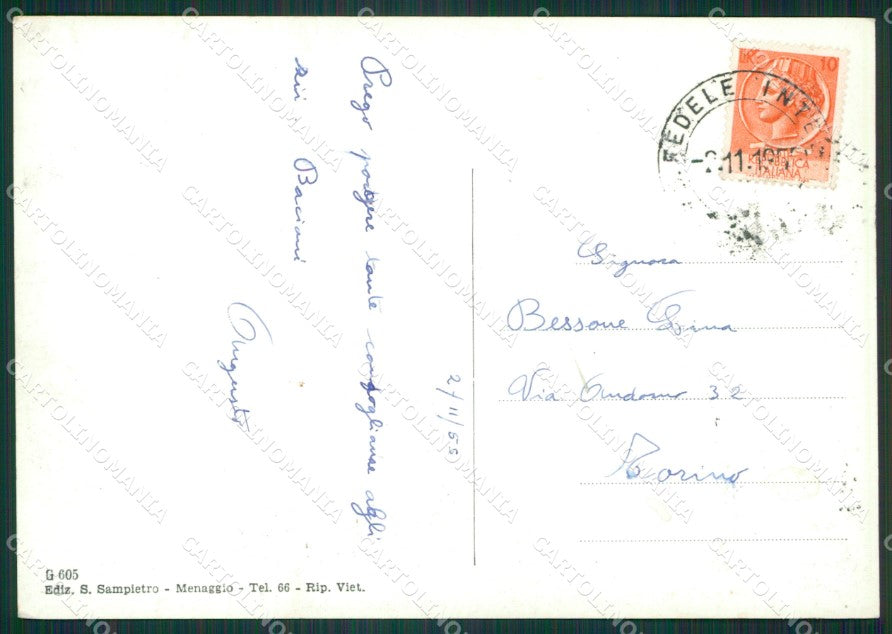 Prego porgere tante condoglianse agli
zii Bacioni
Augusto
2/11/55
FEDELE INTE
-2.11.195
10
ITALIANA
Signora
Bessone Gina
Via Andorno 32
Torino
G 605
Ediz. S. Sampietro - Menaggio - Tel. 66 - Rip. Viet.
CARTOLINOMANIA